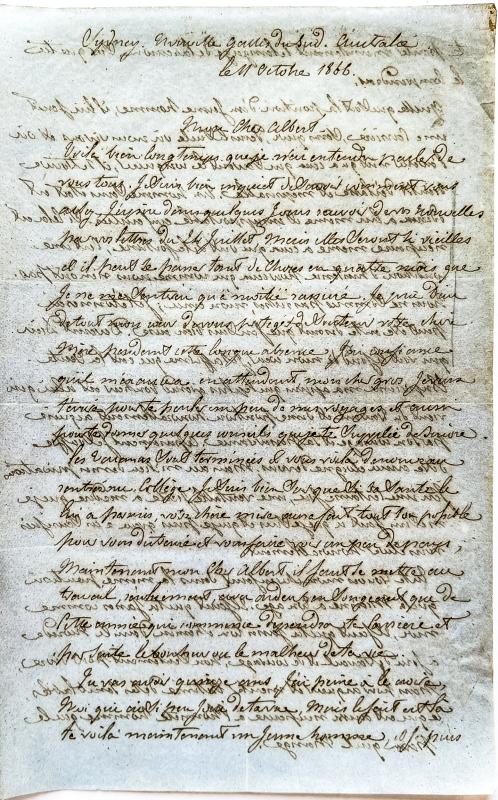 Sydney. Nouvelle galles du Sud. Australie
le 11 Octobre 1866.
Mon cher Albert
Voilà bien longtemps que je n'ai entendu parler de
vous tous, je suis bien inquiet de savoir comment vous
allez. J'espère dans quelques jours recevoir de vos nouvelles
par vos lettres du 24 Juillet mais elles seront si vieilles
et il peut se passer tant de choses en quatre mois que
je ne me sentirai qu'à moitié rassuré. Je prie Dieu
de tout mon cœur de vous protéger et soutenir votre chère
Mère pendant cette longue absence, j'ai confiance
qu'il m'exaucera. en attendant mon cher gros je veux
t'écrire pour te parler un peu de mes voyages et aussi
pour te donner quelques conseils que je te supplie de suivre
Les vacances sont terminées et vous voilà de nouveau
rentré au Collège. je suis bien sûr que si sa santé le
lui a permis votre chère mère aura fait tout son possible
pour vous distraire et vous faire voir un peu de pays,
Maintenant mon cher Albert il faut se mettre au
travail, sérieusement avec ardeur en songeant que de
cette année qui commence dépendra ta carrière et
par suite le bonheur ou le malheur de ta vie.
Tu vas avoir quinze ans, j'ai peine à le croire
Moi qui ai si peu joui de ta vue, mais le fait est là
te voilà maintenant un jeune homme, et si je puis